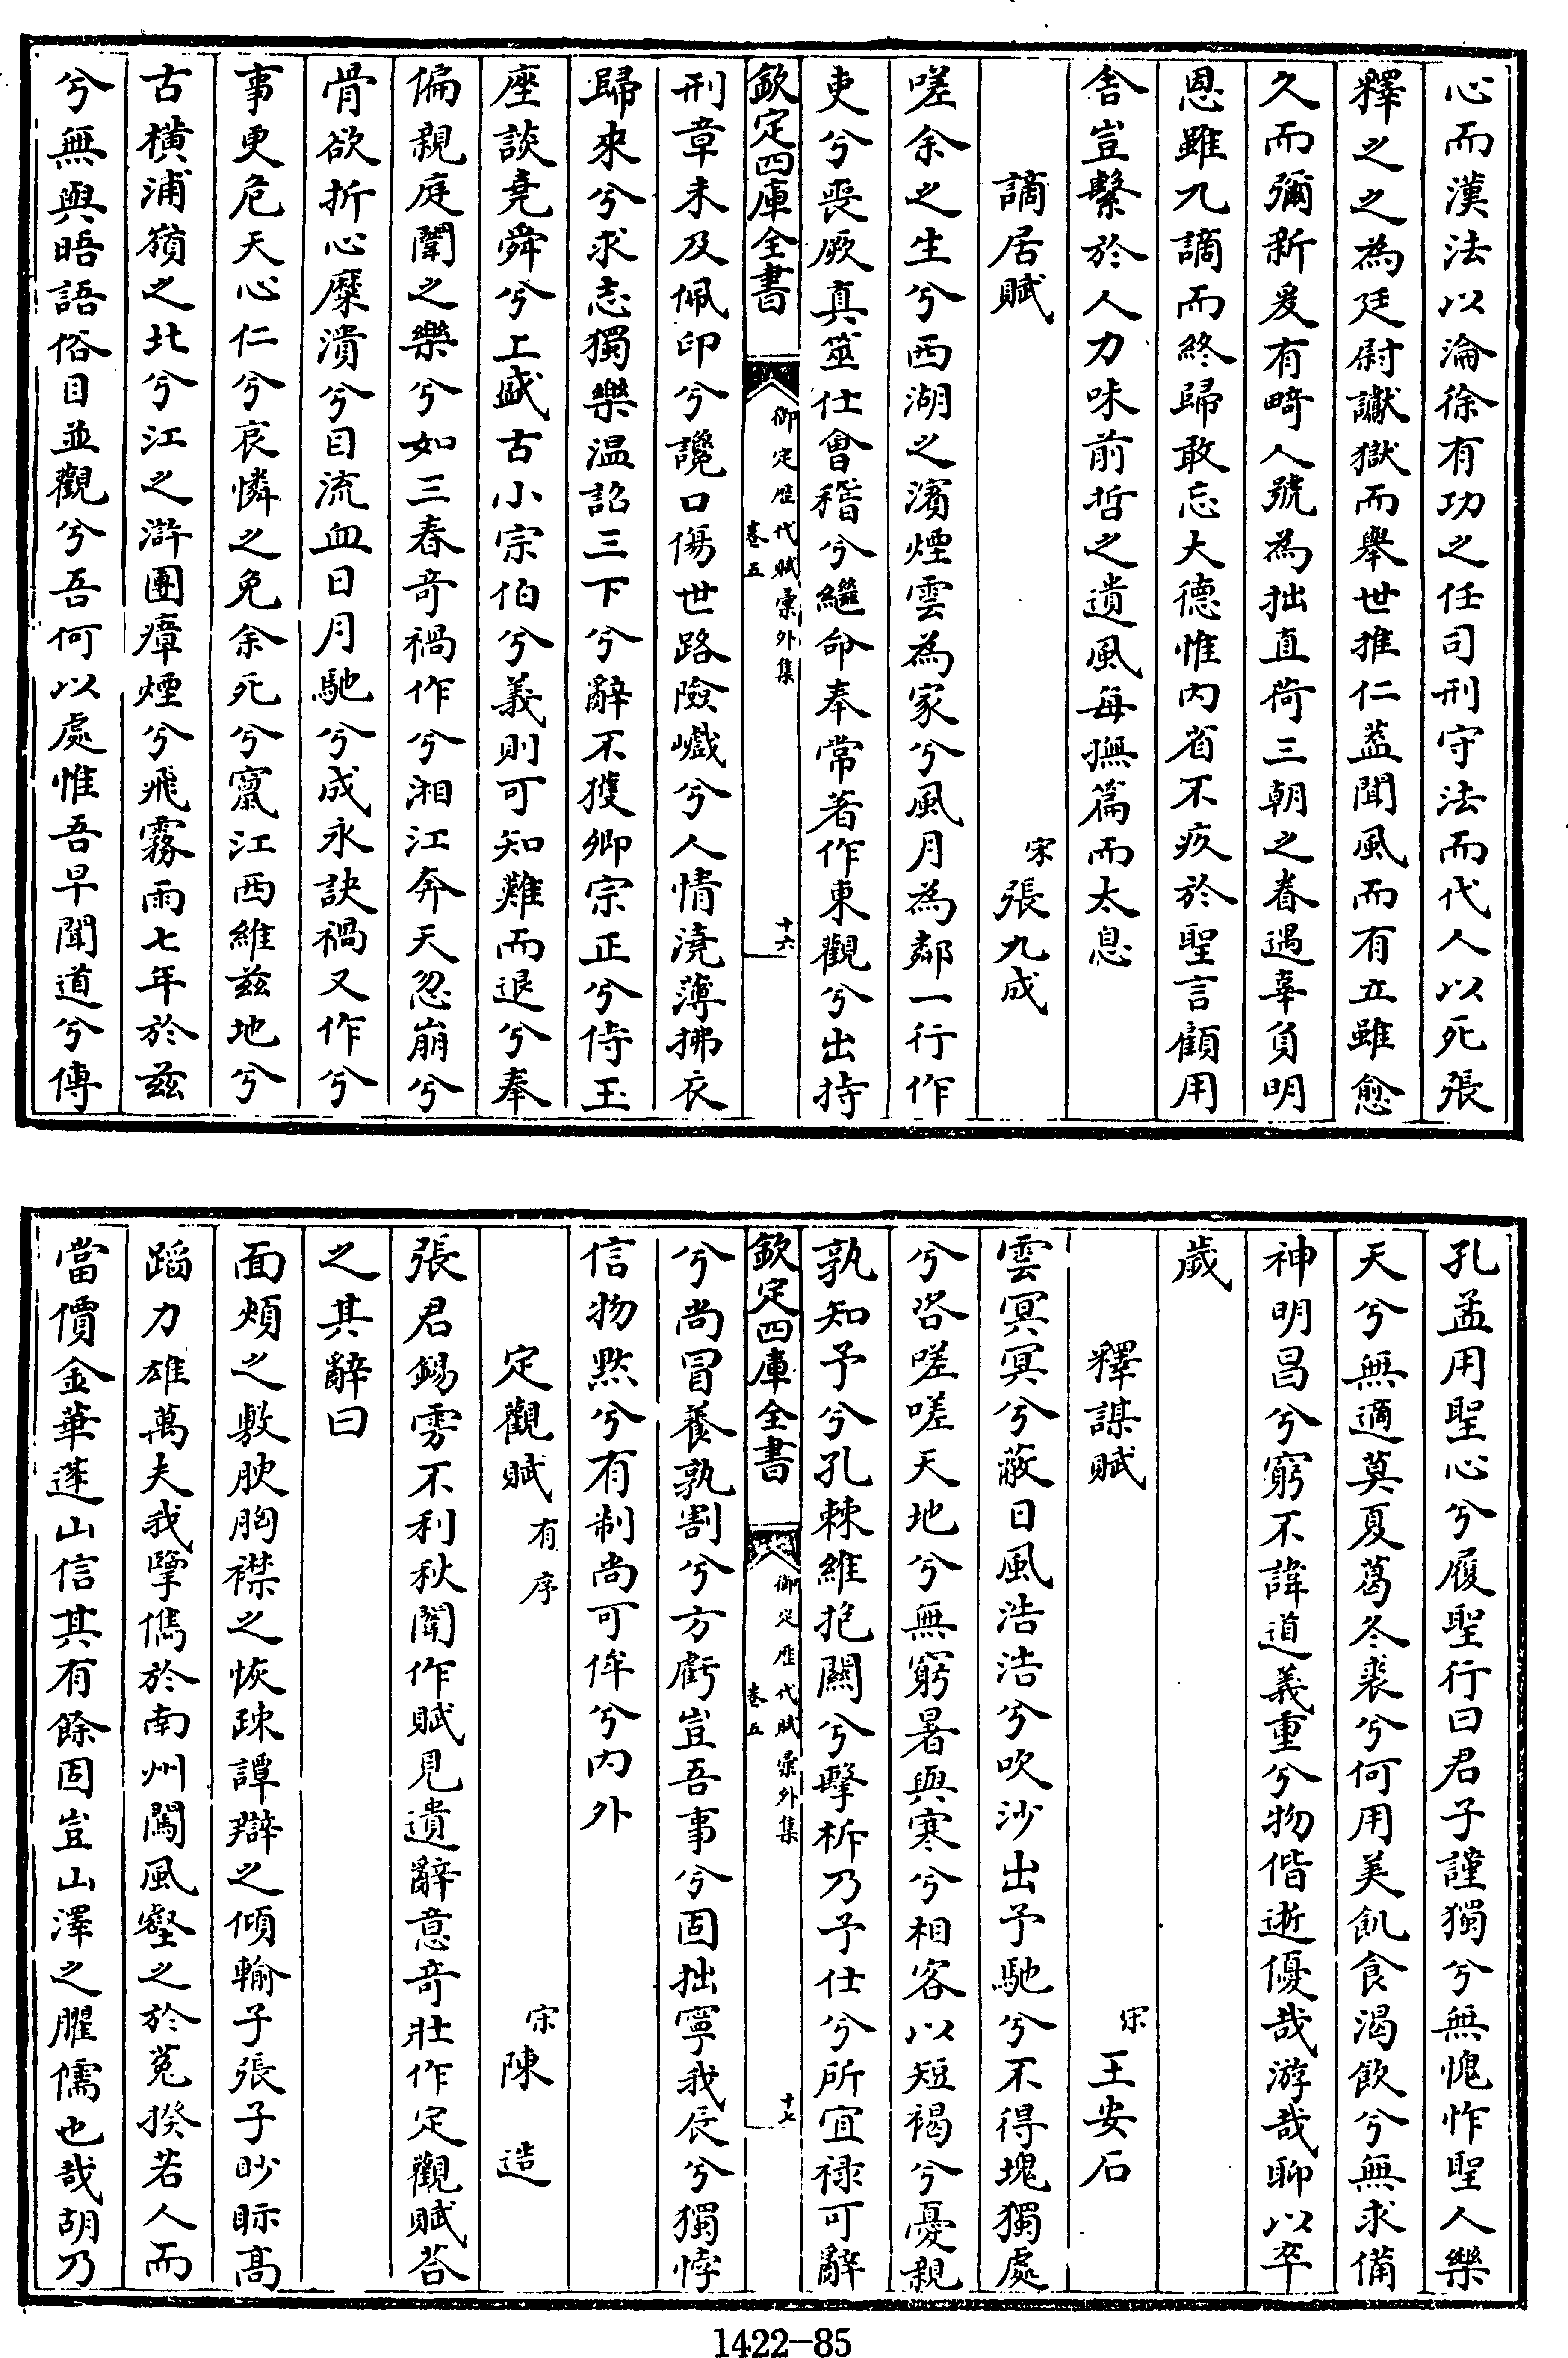 心而漢法以淪徐有功之任司刑守法而代人以死張
釋之之為廷尉讞獄而舉世推仁葢聞風而有立雖愈
久而彌新爰有畸人號為拙直荷三朝之眷遇辜負明
恩雖九謫而終歸敢忘大德惟內省不疚於聖言顧用
舍豈繫於人力味前哲之遺風每撫篇而太息
謫居賦　宋張九成
嗟余之生兮西湖之濱煙雲為家兮風月為鄰一行作
吏兮喪厥真筮仕會稽兮繼命奉常著作東觀兮出持
欽定四庫全書　御定歷代賦彙外集　卷五　十六
刑章未及佩印兮讒口傷世路險巇兮人情澆薄拂衣
歸來兮求志獨樂温詔三下兮辭不獲卿宗正兮侍玉
座談堯舜兮上盛古小宗伯兮義則可知難而退兮奉
偏親庭闈之樂兮如三春奇禍作兮湘江奔天忽崩兮
骨欲折心糜潰兮目流血日月馳兮成永訣禍又作兮
事更危天心仁兮哀憐之免余死兮竄江西維兹地兮
古橫浦嶺之北兮江之滸團瘴煙兮飛霧雨七年於兹
兮無與晤語俗目並觀兮吾何以處惟吾早聞道兮傳
孔孟用聖心兮履聖行曰君子謹獨兮無愧怍聖人樂
天兮無適莫夏葛冬裘兮何用美飢食渴飲兮無求備
神明昌兮窮不諱道義重兮物偕逝優哉游哉聊以卒
歲
釋謀賦　宋王安石
雲冥冥兮蔽日風浩浩兮吹沙出予馳兮不得塊獨處
兮咨嗟嗟天地兮無窮暑與寒兮相客以短褐兮憂親
孰知予兮孔棘維抱關兮擊柝乃予仕兮所宜祿可辭
欽定四庫全書　御定歷代賦彙外集　卷五　十七
兮尚冒養孰割兮方虧豈吾事兮固拙寧我辰兮獨悖
信物黙兮有制尚可侔兮內外
定觀賦有序　宋陳造
張君錫雱不利秋闈作賦見遺辭意奇壯作定觀賦荅
之其辭曰
面頰之敷腴胸襟之恢疎譚辯之傾輸子張子眇眎高
蹈力雄萬夫我擥儁於南州闖風壑之於菟揆若人而
當價金華蓮山信其有餘固豈山澤之臞儒也哉胡乃
1422-85